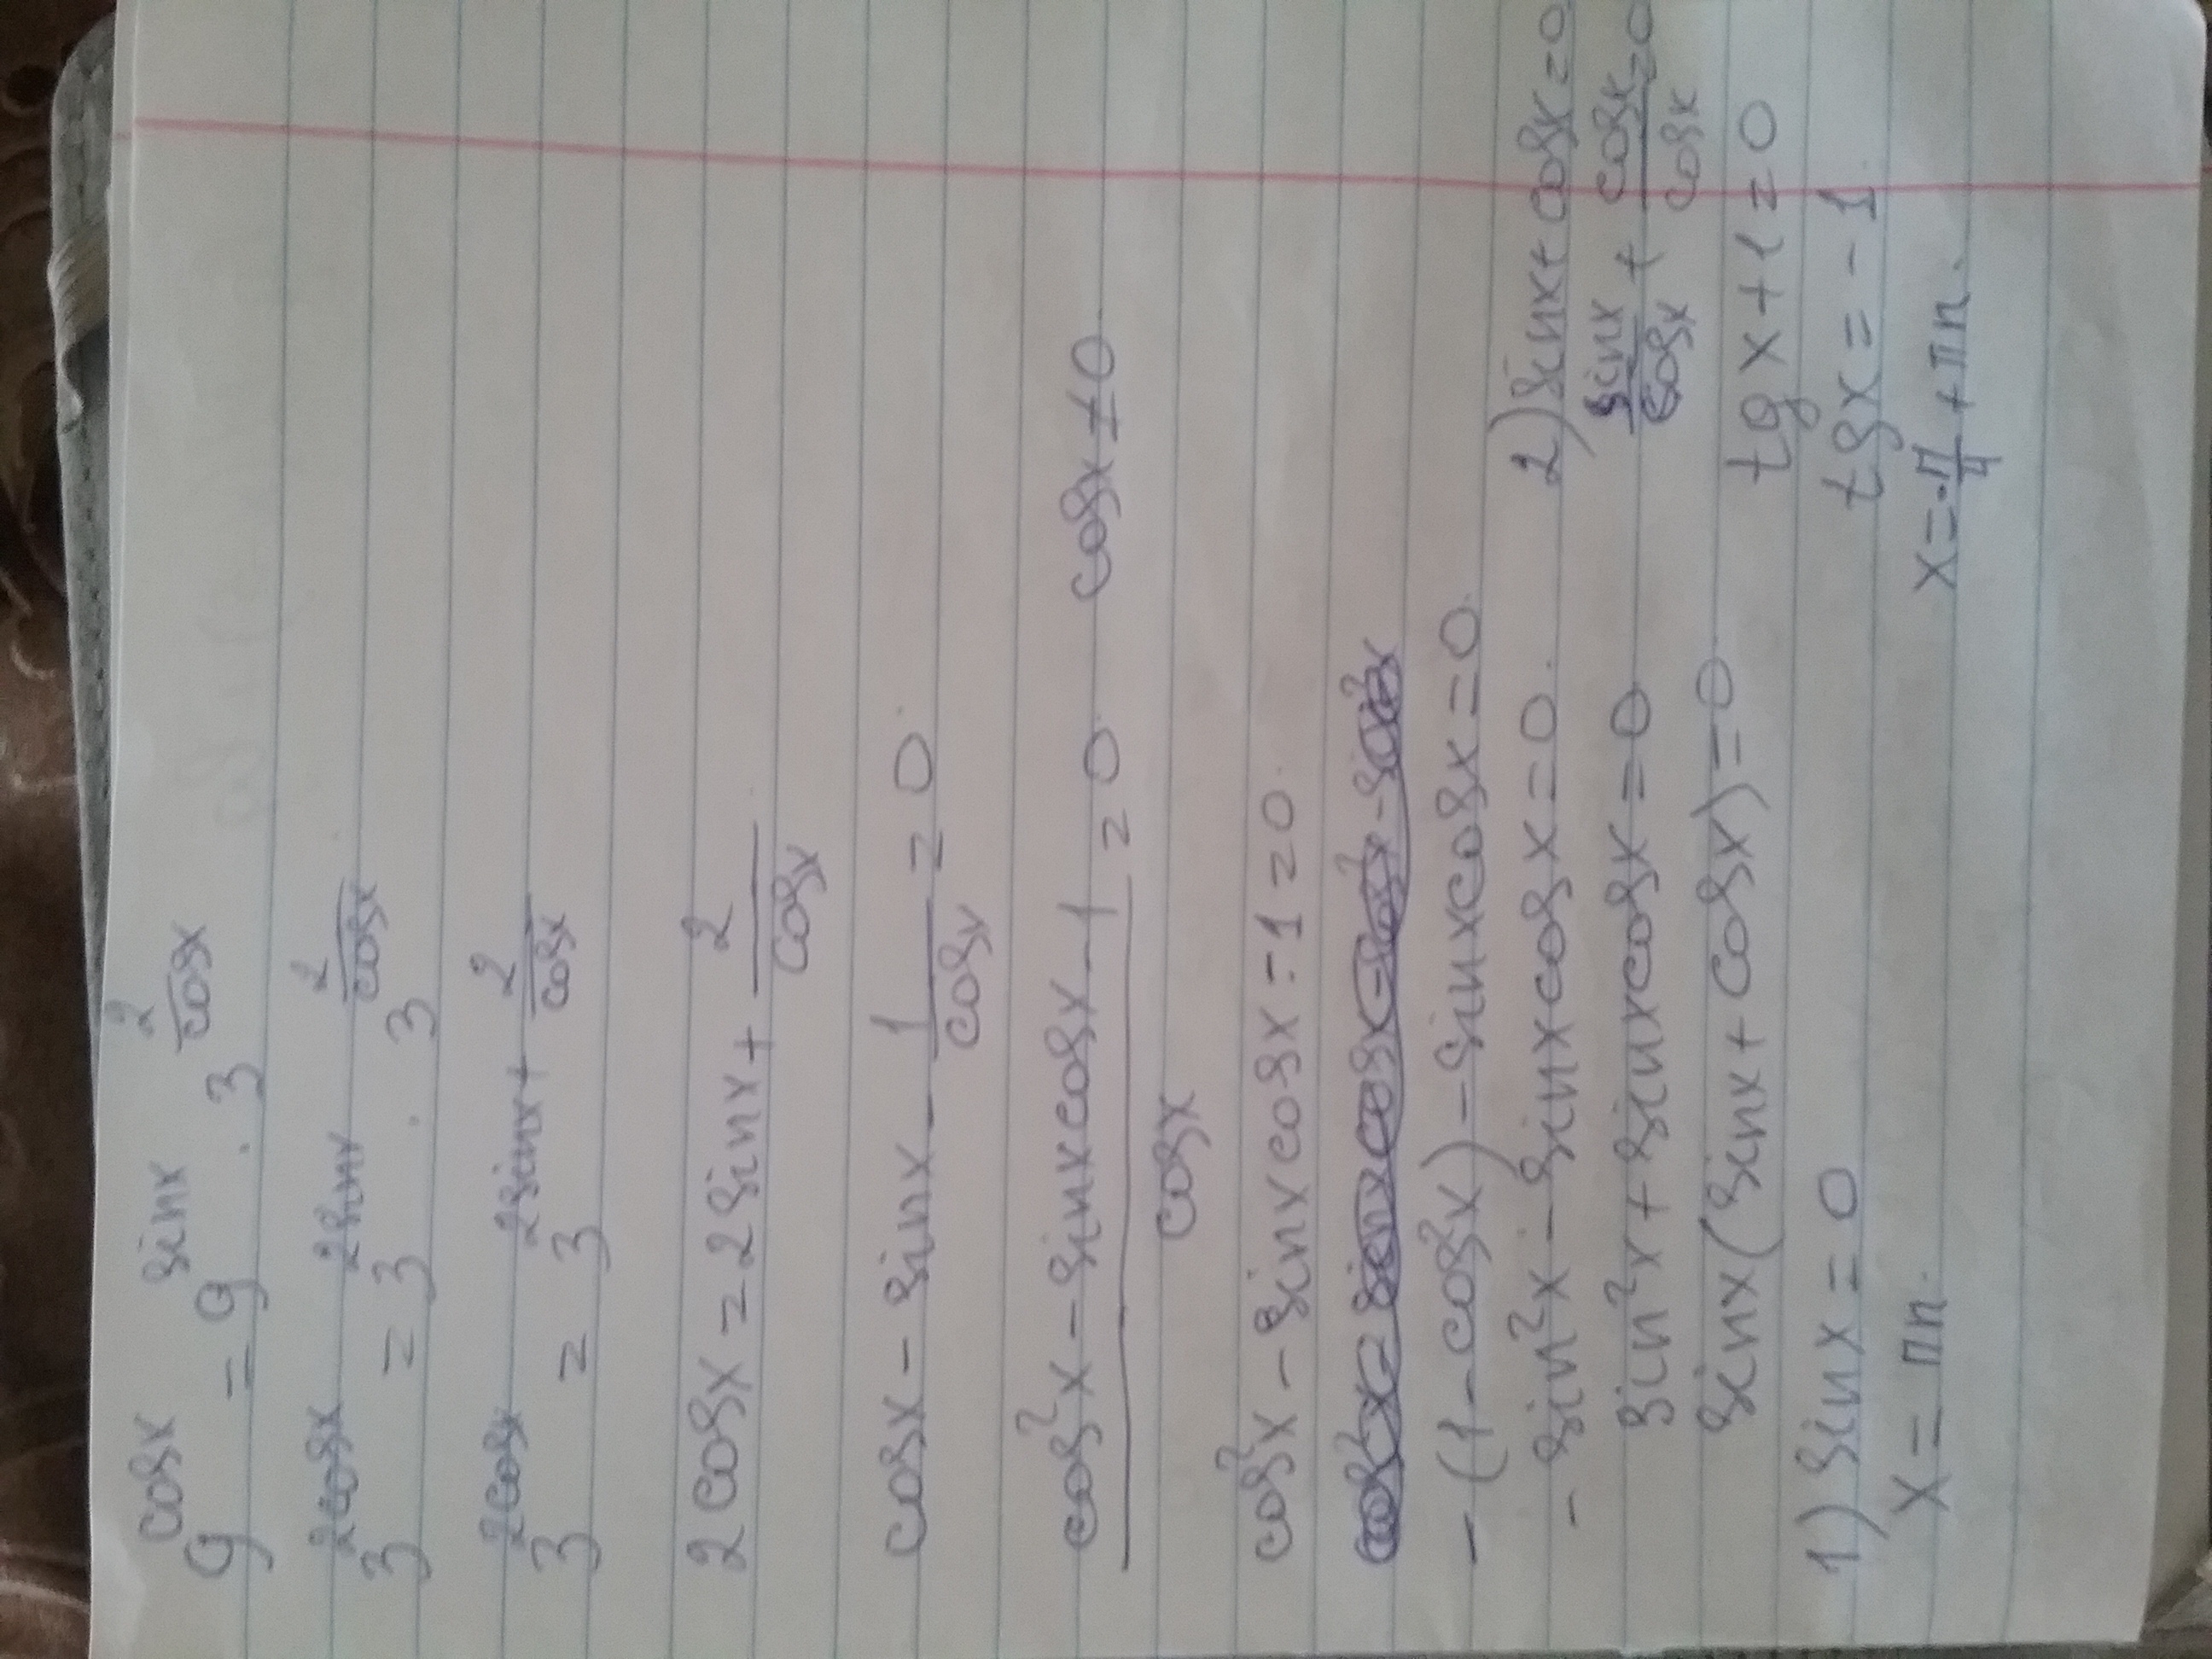 9^cosx = 9^sinx · 3^(2/cosx)
3^2cosx = 3^2sinx · 3^(2/cosx)
3^2cosx = 3^(2sinx + 2/cosx)
2cosx = 2sinx + 2/cosx
cosx - sinx - 1/cosx = 0
(cos²x - sinxcosx - 1)/cosx = 0 cosx ≠ 0
cos²x - sinxcosx - 1 = 0
-(1 - cos²x) - sinxcosx = 0
-sin²x - sinxcosx = 0
sin²x + sinxcosx = 0
sinx(sinx + cosx) = 0
1) sinx = 0
x = πn.
2) sinx + cosx = 0
sinx/cosx + cosx/cosx = 0
tgx + 1 = 0
tgx = -1
x = -π/4 + πn.